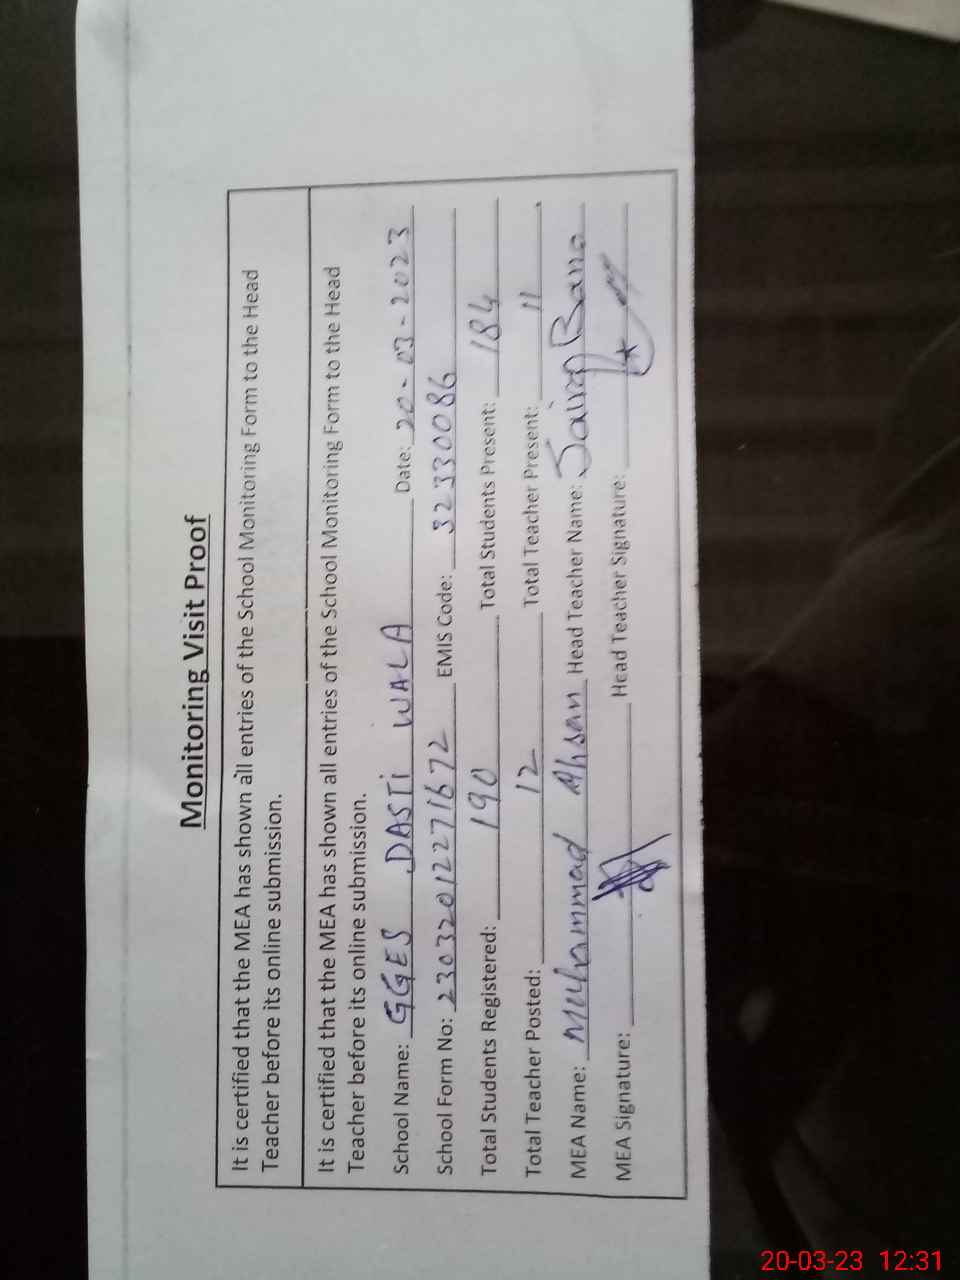 Monitoring Visit Proof
It is certified that the MEA has shown all entries of the School Monitoring Form to the Head
Teacher before its online submission.
It is certified that the MEA has shown all entries of the School Monitoring Form to the Head
Teacher before its online submission.
School Name: GGES DASTi WALA Date: 20-03-2023
School Form No: 23032012271672 EMIS Code: 32330086
Total Students Registered: 190 Total Students Present: 184
Total Teacher Posted: 12 Total Teacher Present: 11
MEA Name: Muhammad Ahsan Head Teacher Name: Bano
MEA Signature: Head Teacher Signature:
20-03-23 12:31